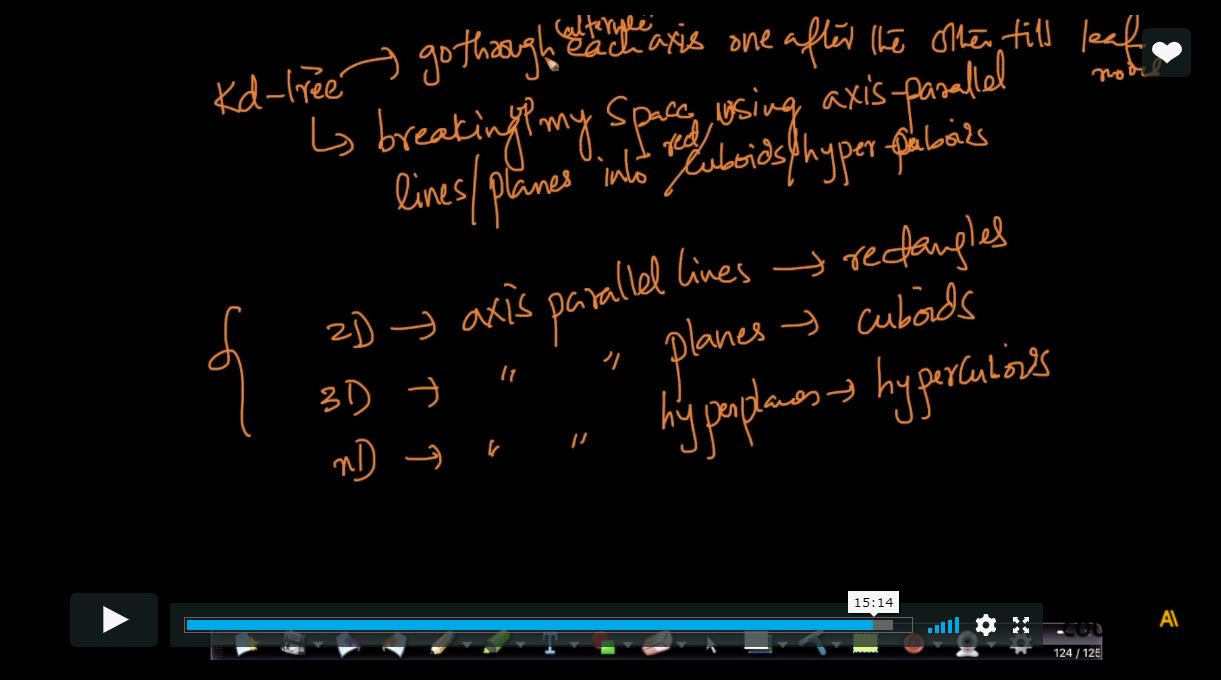 (alternate
Kd-tree → go through each axis one after the other till leaf node
↳ breaking up my space using axis-parallel
lines/planes into rect/cuboids/hyper-cuboids
2D → axis parallel lines → rectangles
3D → " " planes → cuboids
nD → " " hyperplanes → hypercuboids
15:14
124 / 125